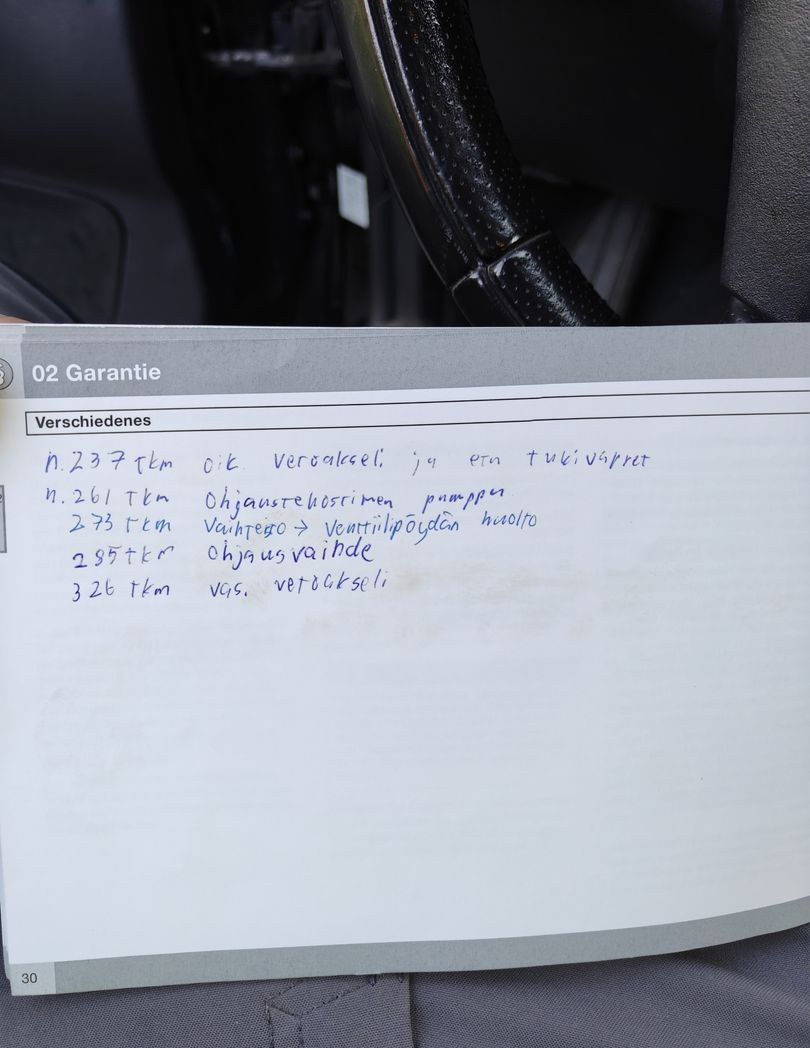 02 Garantie
Verschiedenes
n. 237 tkm oik. vetoakseli ja etu tukivarret
n. 261 tkm Ohjaustehostimen pumppu
273 tkm Vaihteisto → venttiilipöydän huolto
285 tkm Ohjausvaihde
326 tkm vas. vetoakseli
30